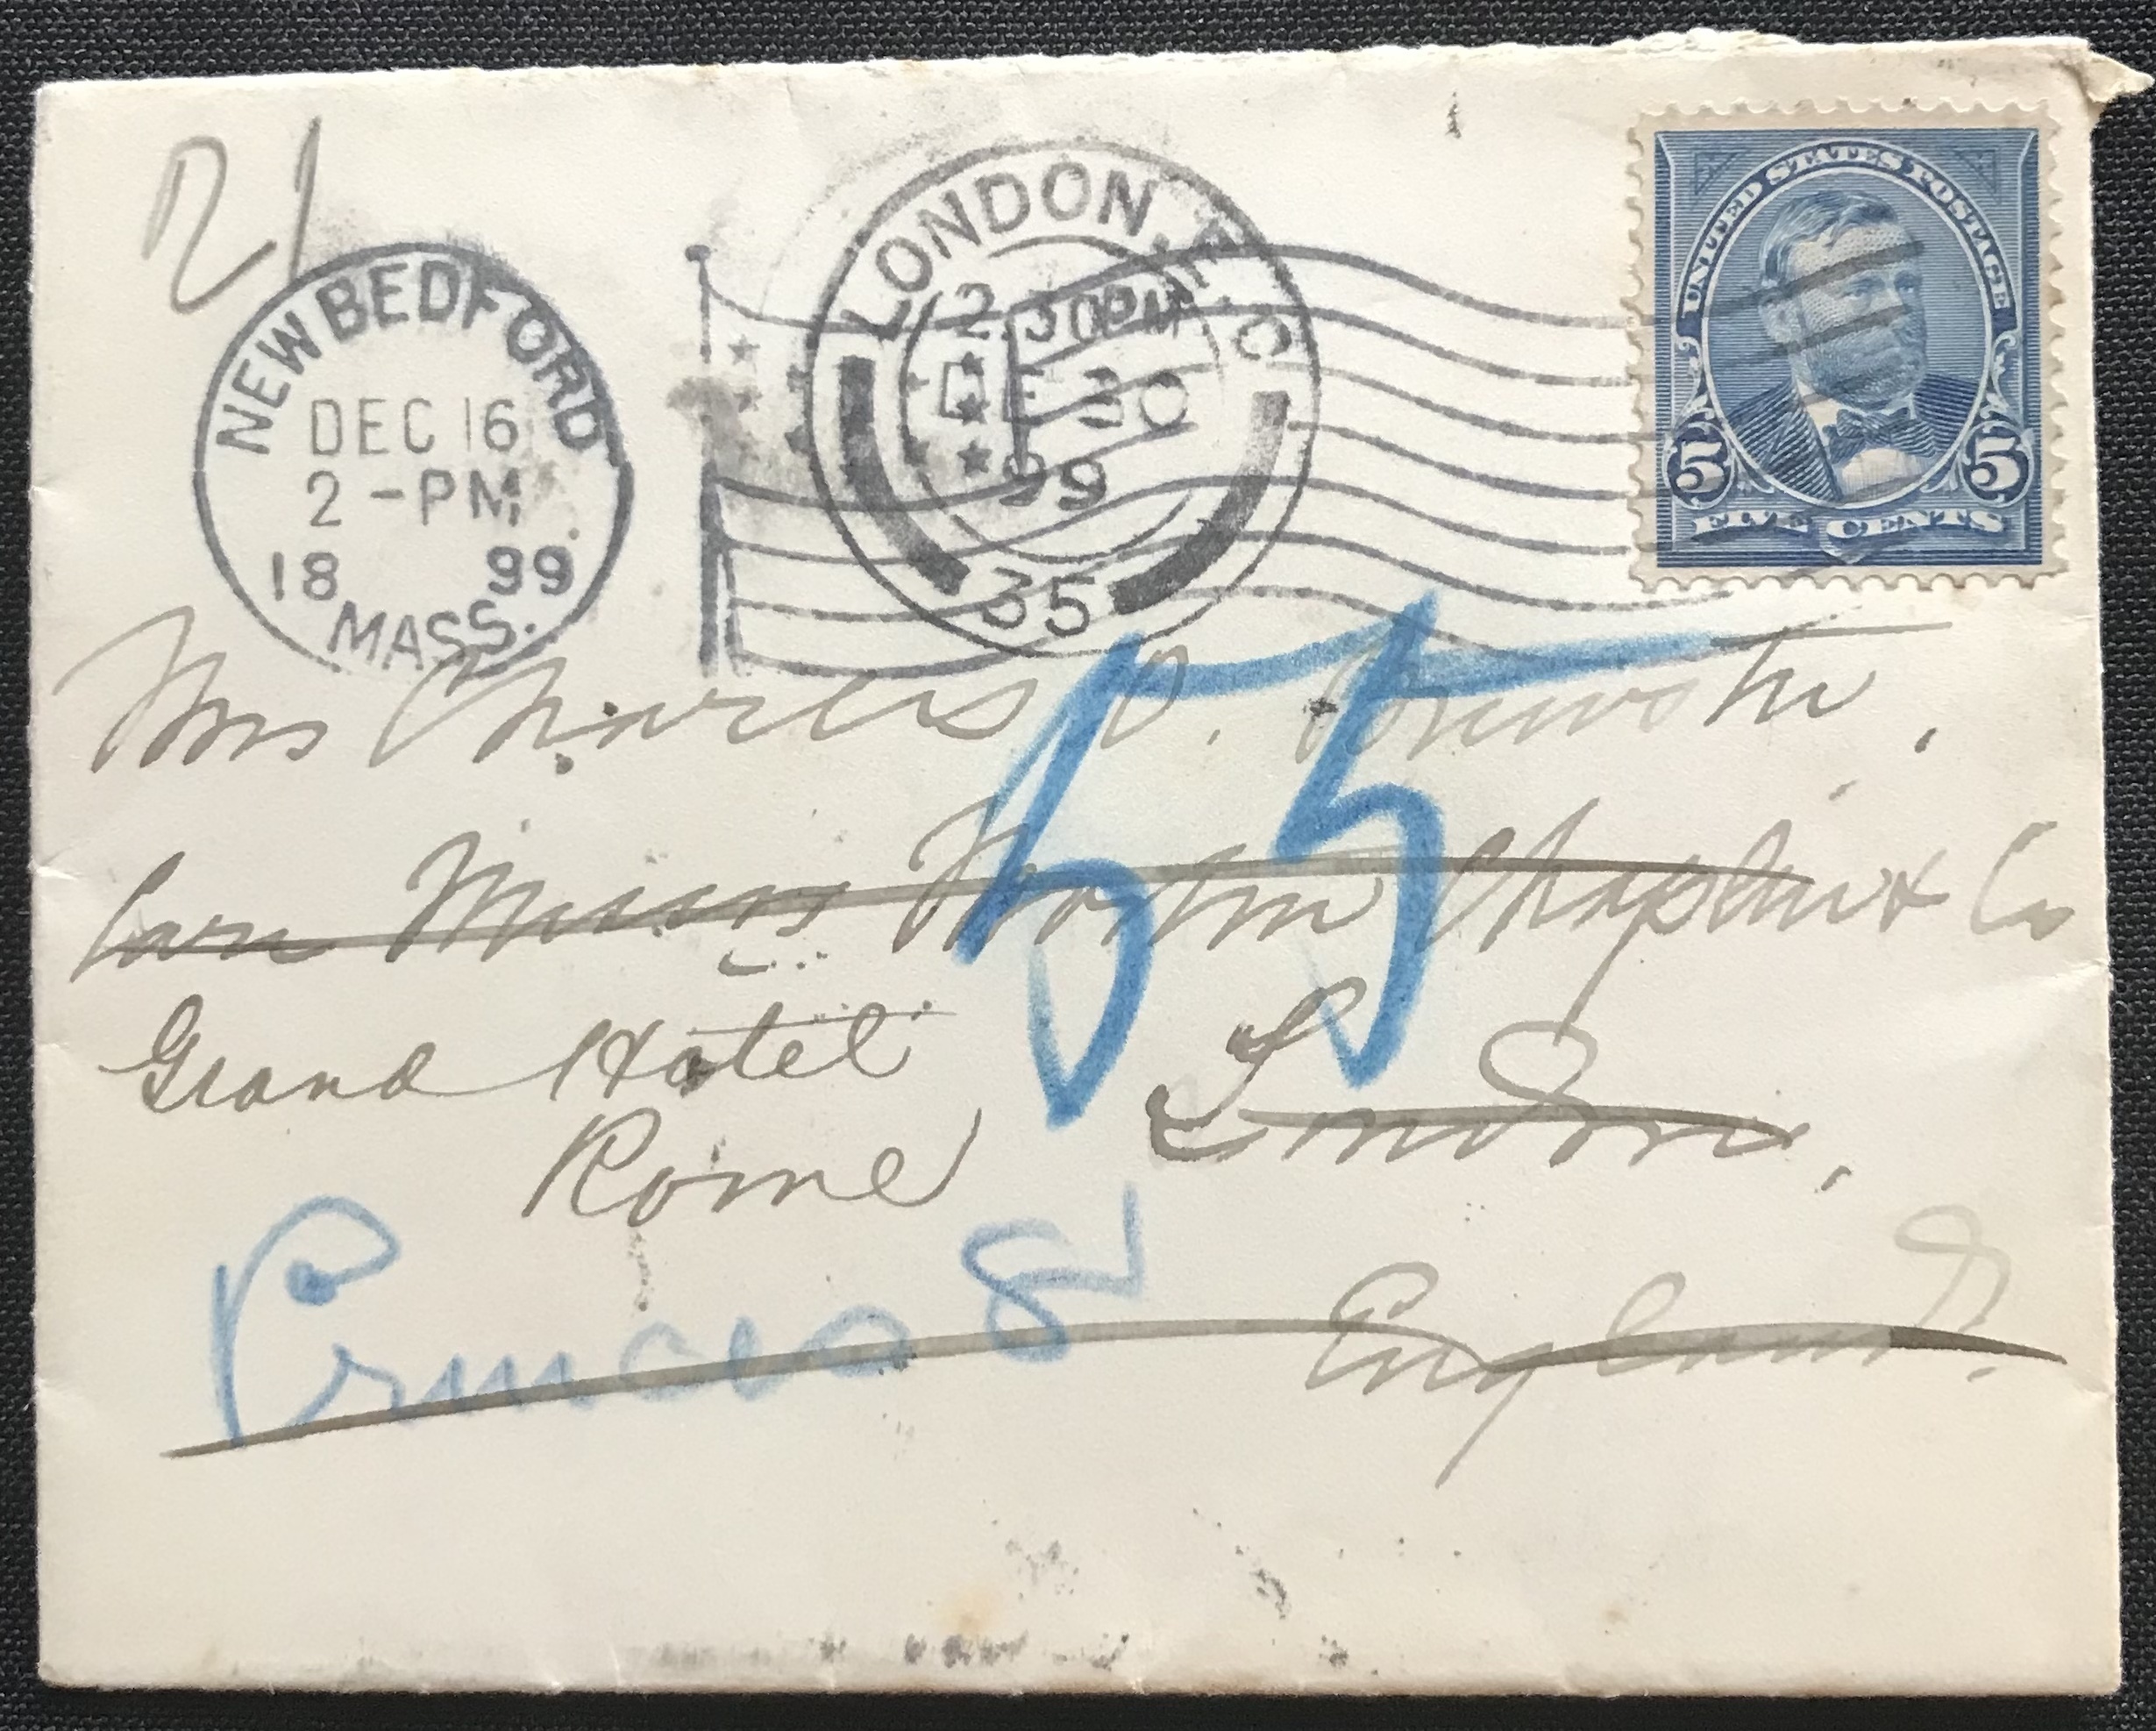 21
NEW BEDFORD
DEC 16
2-PM
18 99
MASS.
LONDON. E.C
2.30PM
DE 30
99
35
UNITED STATES POSTAGE
5 5
FIVE CENTS
55
Mrs Charles O. Brewster,
Care Messrs Chaplin & Co
Grand Hotel
London,
Rome
England.